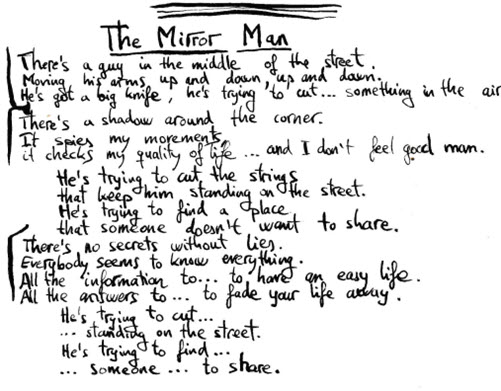 The Mirror Man
There's a guy in the middle of the street.
Moving his arms up and down, up and down.
He's got a big knife, he's trying to cut... something in the air
There's a shadow around the corner.
It spies my movements,
it checks my quality of life ... and I don't feel good man.
He's trying to cut the strings
that keep him standing on the street.
He's trying to find a place
that someone doesn't want to share.
There's no secrets without lies.
Everybody seems to know everything.
All the information to... to have an easy life.
All the answers to... to fade your life away.
He's trying to cut...
... standing on the street.
He's trying to find...
... someone ... to share.